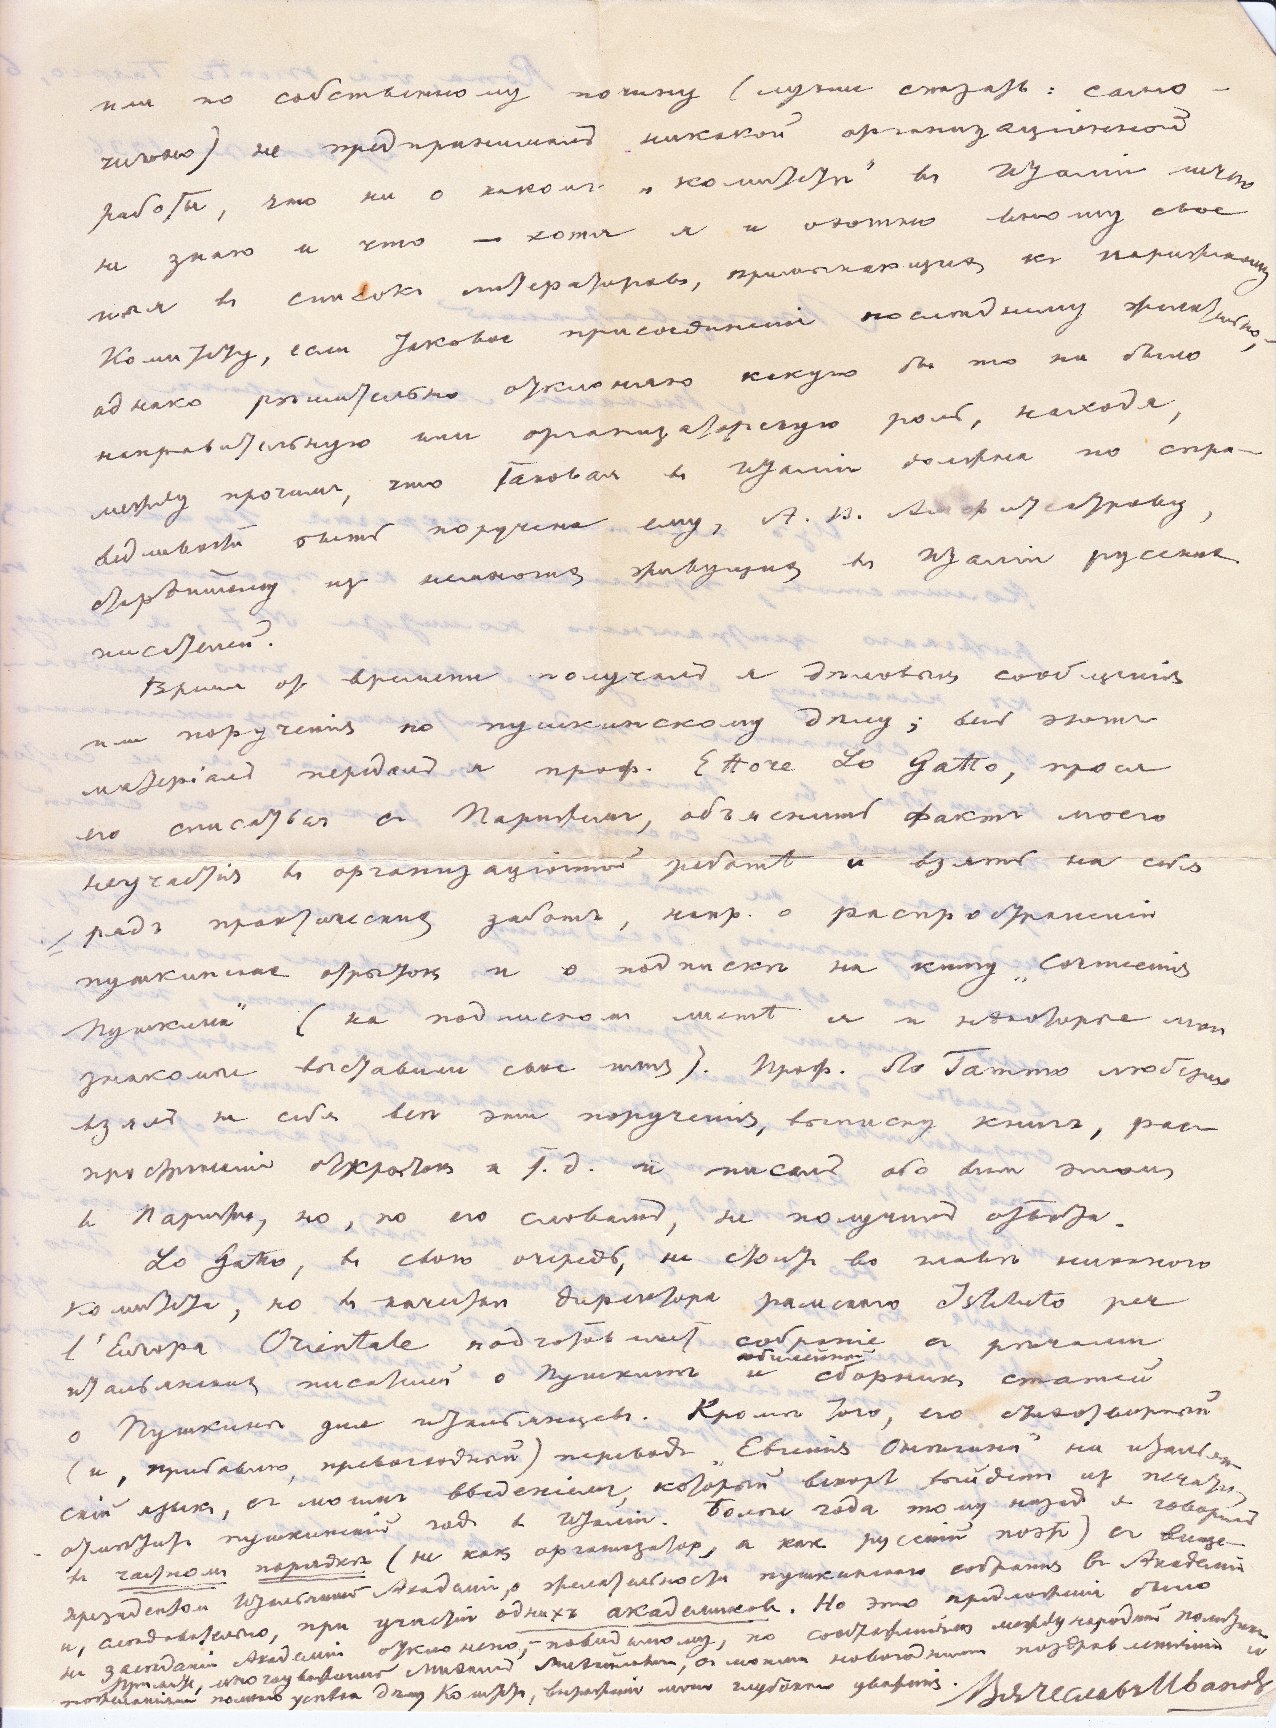 или по собственному почину (лучше сказать: само-
чинно) не предпринималъ никакой организаціонной
работы, что ни о какомъ „комитетѣ" въ Италіи ничего
не знаю и что — хотя я и охотно вношу свое
имя въ списокъ литераторовъ, примыкающихъ къ Парижскому
Комитету, если таковое присоединеніе послѣднему желательно, —
однако рѣшительно отклоняю какую бы то ни было
направительную или организаторскую роль, находя,
между прочимъ, что таковая въ Италіи должна по спра-
ведливости быть поручена ему, А. В. Амфитеатрову,
старѣйшему изъ немногихъ живущихъ въ Италіи русскихъ
писателей.
Время отъ времени получалъ я дѣловыя сообщенія
или порученія по пушкинскому дѣлу; весь этотъ
матеріалъ передалъ я проф. Ettore Lo Gatto, прося
его списаться съ Парижемъ, объяснить фактъ моего
неучастія въ организаціонной работѣ и взять на себя
рядъ практическихъ заботъ, напр. о распространеніи
пушкинскихъ открытокъ и о подпискѣ на книгу „Сочиненія
Пушкина" (на подписномъ листѣ я и нѣкоторые мои
знакомые выставили свое имя). Проф. Ло Гатто любезно
взялъ на себя всѣ эти порученія, выписку книгъ, рас-
пространеніе открытокъ и т. д. и писалъ обо всемъ этомъ
въ Парижъ, но, по его словамъ, не получилъ отвѣта.
Lo Gatto, въ свою очередь, не стоитъ во главѣ никакого
комитета, но въ качествѣ директора римскаго Istituto per
l'Europa Orientale подготовляетъ собраніе съ рѣчами
итальянскихъ писателей о Пушкинѣ и юбилейный сборникъ статей
о Пушкинѣ для итальянцевъ. Кромѣ того, его стихотворный
(и, прибавлю, превосходный) переводъ „Евгенія Онѣгина" на итальян-
скій языкъ, съ моимъ введеніемъ, который вскорѣ выйдетъ изъ печати,
отмѣтитъ пушкинскій годъ въ Италіи. Болѣе года тому назадъ я говорилъ
въ частномъ порядкѣ (не какъ организаторъ, а какъ русскій поэтъ) съ вице-
президентомъ Итальянской Академіи о желательности пушкинскаго собранія въ Академіи
и, слѣдовательно, при участіи однихъ академиковъ. Но это предложеніе было
на засѣданіи Академіи отклонено, — повидимому, по соображеніямъ международной политики.
Примите, многоуважаемый Михаилъ Михайловичъ, съ моимъ новогоднимъ поздравленіемъ и
пожеланіями полнаго успѣха дѣлу Комитета, выраженіе моего глубокаго уваженія.
Вячеславъ Ивановъ